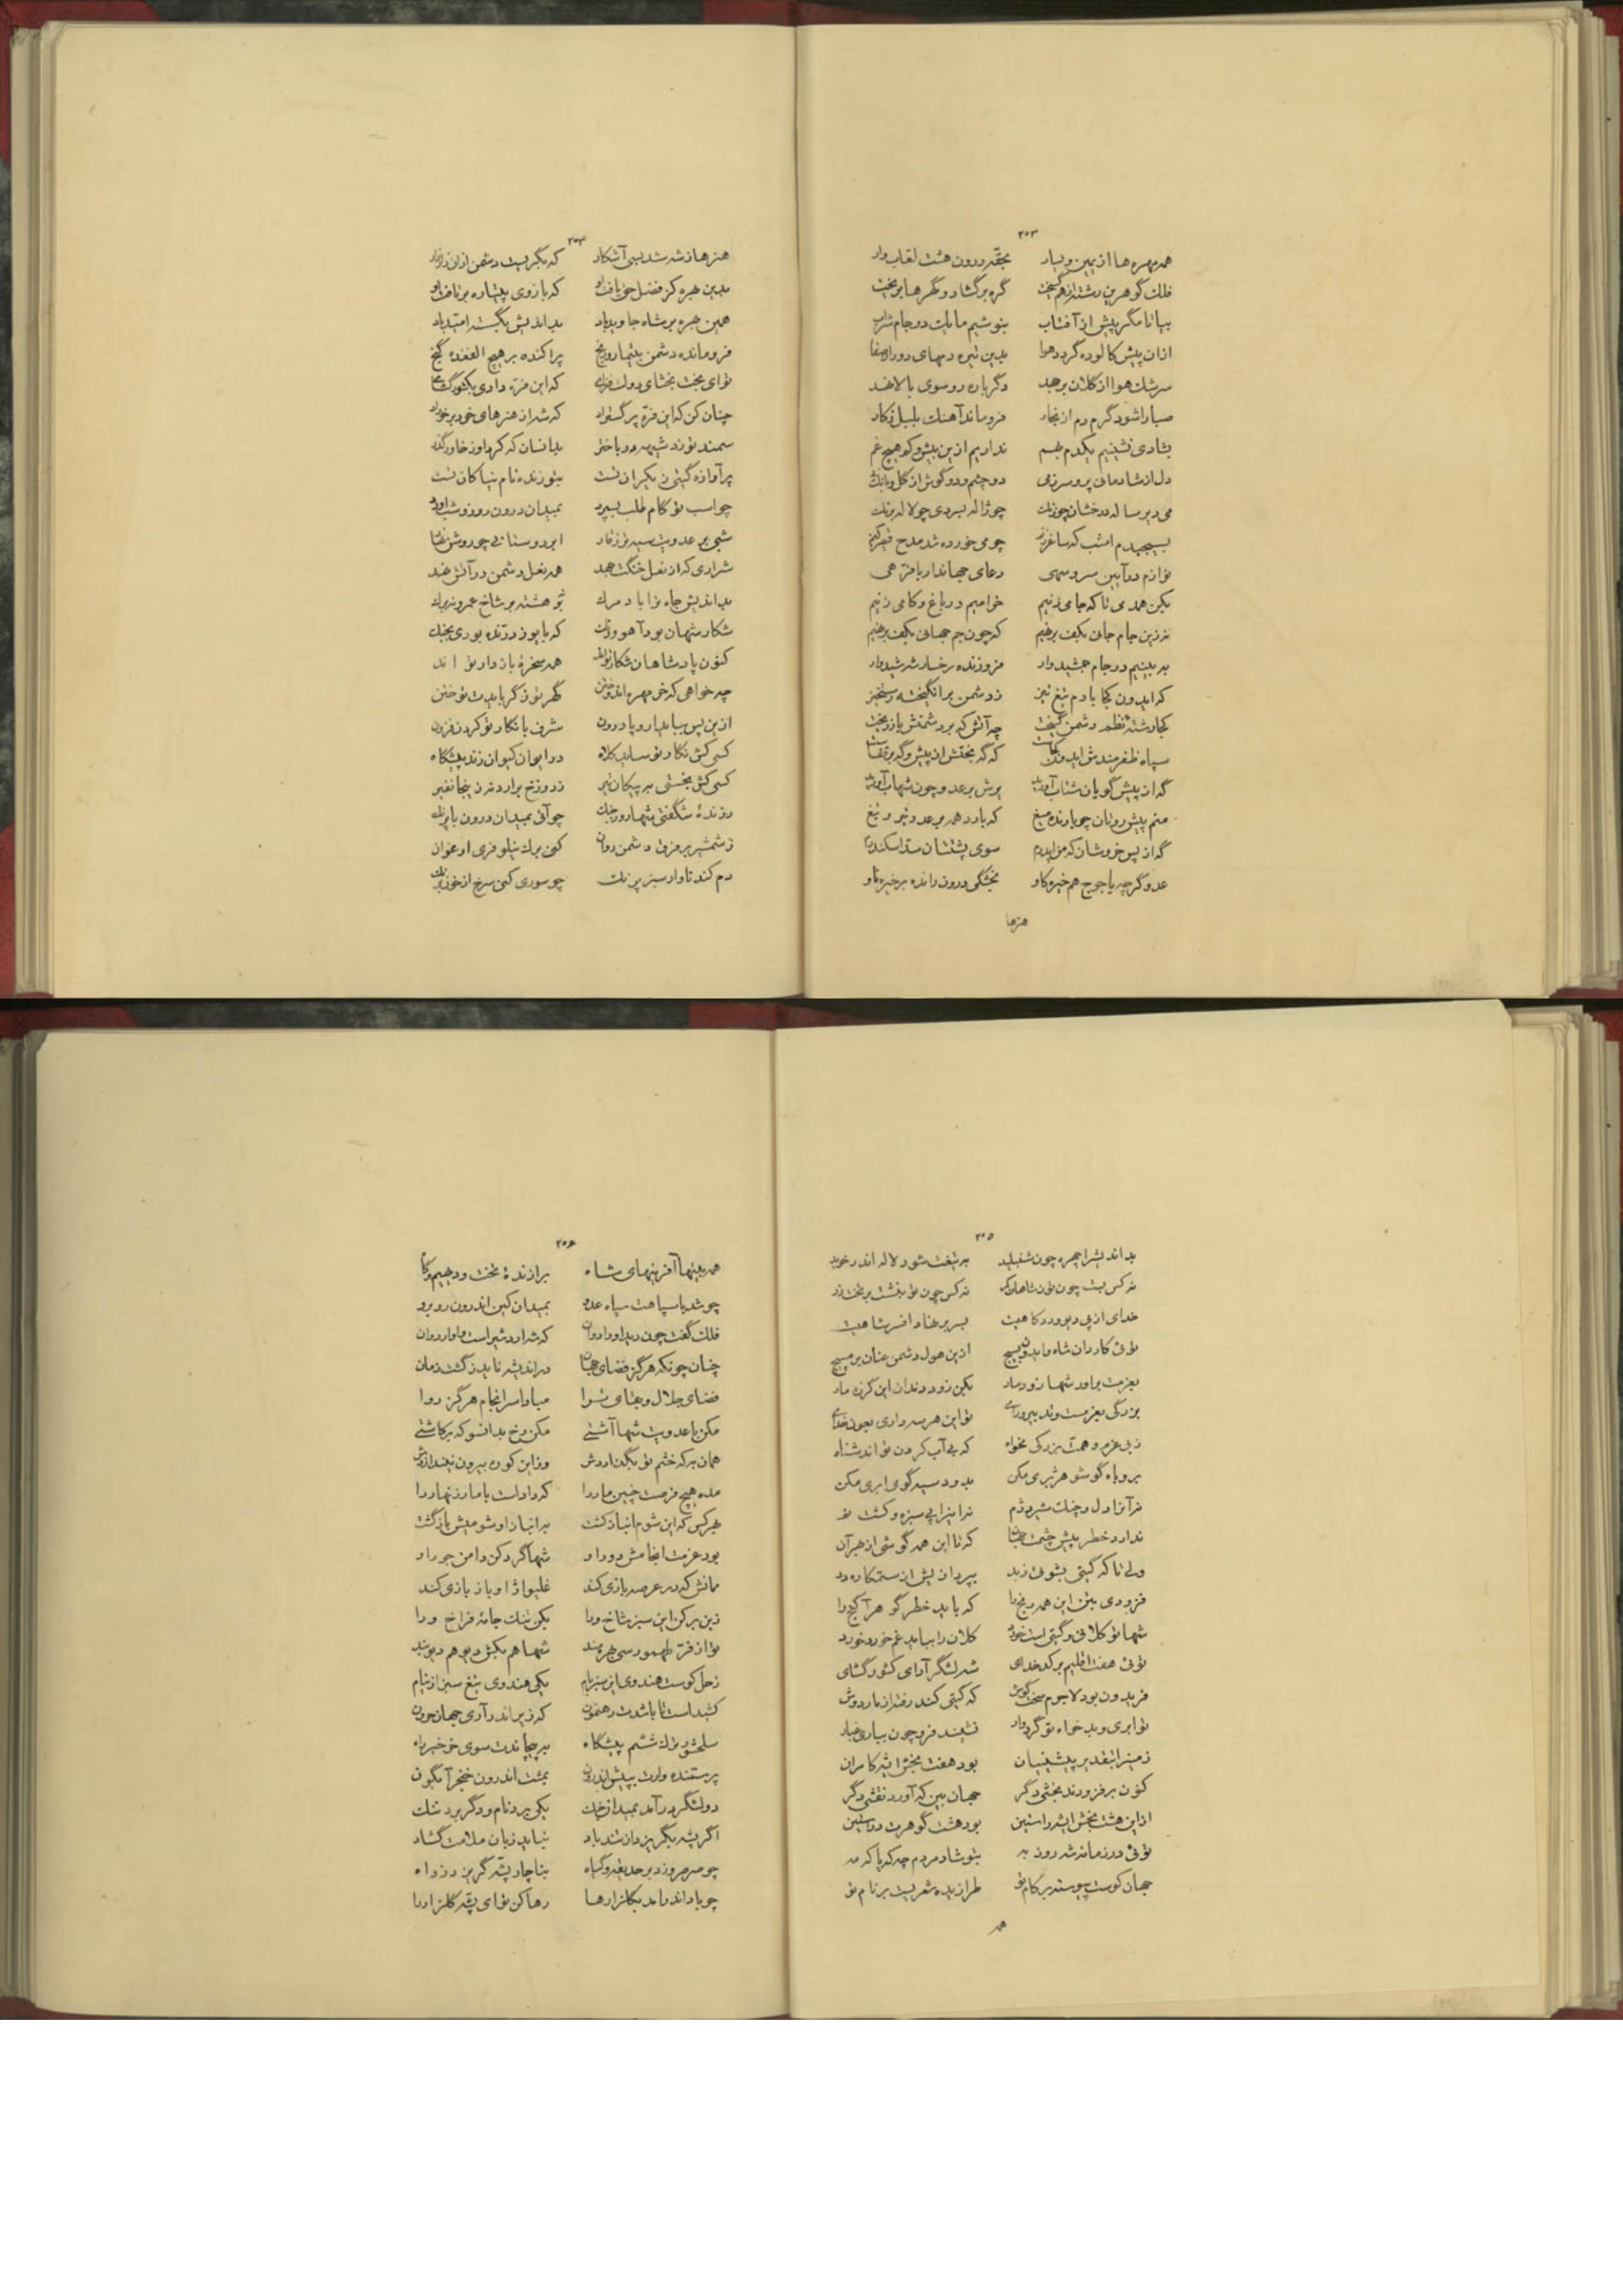 ۲۰۳
همه مهره‌ها از یمین و یسار بحقه درون هشت لعاب‌وار
فلك گوهرین رشته از هم گسیخت گره برگشاد و گهرها بریخت
بیا تا مگر پیش از آفتاب بنوشیم ما یك دو جام شراب
از آن پیش كالوده گردد هوا بدین تیره دمهای دور از صفا
سرشك هوا از كلان برجهد دگرباره رو سوی بالا نهد
صبا را شود گرم دم از بخار فرو ماند آهنك بلبل ز كار
بشادی نشینیم یكدم بهم نداریم ازین بیش و كم هیچ غم
دل از شادمانی پر و سر ز می دو چشم و دو گوش از گل و بانك نی
می دیرساله درخشان چو زنك چو ژاله بسردی چو لاله برنك
بسیجیدم امشب كه ساغر زنم چو می خورده شد مدح قیصر كنم
نوازم در آیین سرو سهی دعای جهاندار با فرهی
بكن همدمی تا كه جامی زنیم خرامیم در باغ و كامی زنیم
زرین جام جان بكف برنهیم كه چون جم جهانی بكف برنهیم
ببینیم در جام جمشیدوار فروزنده رخسار شه شیدوار
كه ایدون كجا با دم تیغ تیز ز دشمن برانگیخته رستخیز
كجا رشته نظم دشمن گسیخت چه آتش كه بر دشمنش باز ریخت
سپاه ظفرمندش ایدون كجاست كه گه بختش از پیش و گه بر قفاست
گه از پیش گویان شتاب آورید پرش بر عدو چون شهاب آورید
منم پیش روتان چو بارنده میغ كه بارد همه بر عدو تیر و تیغ
گه از پس خروشان كه من ایدرم سوی پشتتان سد اسكندرم
عدو گرچه یاجوج هم خیره كاو بخشكی درون رانده بر خیره ناو
هنرها
۲۰۴
هنرها ز شه شد بسی آشكار كه بگریست دشمن از آن زار زار
بدین بهره كز فضل حق یافت او كه بازوی پتیاره برتافت او
همین بهره بر شاه جاوید باد بداندیش بگسسته امید باد
فرومانده دشمن بتیمار و رنج پراكنده بر هیچ الفغده گنج
تو ای بخت بخشای دولت فزای كه این فره داری بكشورگشای
چنان كن كه این فره پر گستراد كه شه از هنرهای خود برخوراد
سمند تو زد شیهه در باختر بدانسان كه كر داور خاور
پر آوازه گیتی ز یكران تست بتو زنده نام نیاكان تست
چو اسب تو گام طلب بسپرد بمیدان درون روز و شب آورد
شبی بر عدویت سیه‌تر ز قار ابر دوستانی چو روشن نهار
شراری كه از نعل خنگت جهد همه نعل دشمن در آتش نهد
بداندیش جاه ترا باد مرك تو هشته بر شاخ عمر و نه برك
شكار شهان بود آهو و رنك كه با یوز درنده بودی بجنك
كنون پادشاهان شكار تواند همه سخرهٔ باز دار تو اند
چه خواهی كه خر مهره اندوختن گهر توز گر بایدت توختن
ازین پس بیا بدار و پا درون شرف با نكار تو كردن فزون
كسی كش نكار تو ساید كلاه در ایوان كیوان زند پیشگاه
كسی كش بخستی به پیكان تیر ز دوزخ برآرد نه زینجا نفیر
رزندهٔ شگفتی شها روز جنك چو آئی بمیدان درون با پرنك
ز شمشیر پر فزی دشمن روان كنی برك نیلوفری ارغوان
دم كندناوار سبز پرنك چو سوری كنی سرخ از خون برنك
۲۰۵
بداندیش را چهره چون شنبلید به تیغت شود لاله اندر خوید
نه كس بست چون تو ز شاهان كمر نه كس چون تو بنشست بر تخت زر
خدای از پی دیو و دد كاهیت بسر بر نهاد افسر شاهیت
توئی كاردان شاه و ایدون بسیج ازین هول دشمن عنان بر مپیچ
بعزمت برآور شها زود مار بكن زود دندان این گرزه مار
بزرگی بعزمست و تدبیر و رای تو این هر سه داری بعون خدای
ز بی عزم و همت بزرگی مخواه كه بی آب كردن تو اند شناه
بروباه گو شو هژبری مكن بدود سیه گوی ابری مكن
نه آنرا دل و چنك شیر دژم نه اینرا پی سبزه و كشت نم
ندارد خطر پیش چشمت جهان كه تا این همه گوشی از بهر آن
ولی تا كه گیتی بشوئی ز بد بپردازیش از ستمكاره دد
فزودی بتن این همه رنج را كه باید خطر گوهر آگنج را
شها تو كلانی و گیتی است خورد كلان را بباید غم خرد خورد
توئی هفت اقلیم بر كدخدای شه لشگرآرای كشور گشای
فریدون بود لاجرم سخت كوش كه گیتی كند رفته از ماردوش
تو ابری و بدخواه تو گردوار نشیند فرو چون بباری غبار
زمین را بتقدیر پیشینیان بود هفت بخش ای شه كامران
كنون برفزودند بخشی دگر جهان بین كه آورد نقشی دگر
از این هشت بخش ای شه راستین بود هشت گوهرت در آستین
توئی در زمانه شه رود به بتو شاد مردم چه كه پا كه مه
جهان كوست پیوسته بر كام تو طرازیده شعریست بر نام تو
همه
۲۰۶
همه بیتها آفرینهای شاه برازندهٔ تخت و دیهیم و گاه
چو شد با سپاهت سپاه عدو بمیدان كین اندرون روبرو
فلك گفت چون دید او را دوان كه شه اردشیر است و او اردوان
چنان چونكه هرگز فضای جهان در اندیشه ناید ز گشت زمان
فضای جلال و بقای ترا مبادا سرانجام هرگز روا
مكن با عدویت شها آشتی مكن رخ بدانسو كه برگاشتی
همان به كه خشم تو بگدازدش وز این كوره بیرون نیندازدش
مده هیچ فرصت چنین مار را كه داد است با مار زنهار را
بهر كس كه این شوم انباز گشت به انباز او شومیش بازگشت
بود عزمت انجامش دور او شها گرد كن دامن جور او
مانش كه در عرصه بازی كند غلیواژ او باز بازی كند
ز بن بركن این سبز شاخ ورا بكن تنك جامهٔ فراخ ورا
تو از فر طهمورسی بهره‌مند شها هم بكش دیو هم دیو بند
زحل كوست هندوی این سبز بام یكی هندوی تیغ سبز از نیام
كشید است تا باشدت رهنمون كه زیر اندر آری جهان حرون
سلحشور ترك ششم پیشگاه بپیچاندت سوی خرخیز راه
پرستنده وارت بپیش اندرون بمشت اندرون خنجر آبگون
دو لشگر درآمد بمیدان جنك یكی برد نام و دگر برد ننك
اگر پشه بگریزد از تندباد نباید زبان ملامت گشاد
چو صرصر وزد بر حدیقه و گیاه بناچار پشه گریزد ز راه
چو باد اندر آمد بگلزارها رها كن تو ای پشه گلزار را